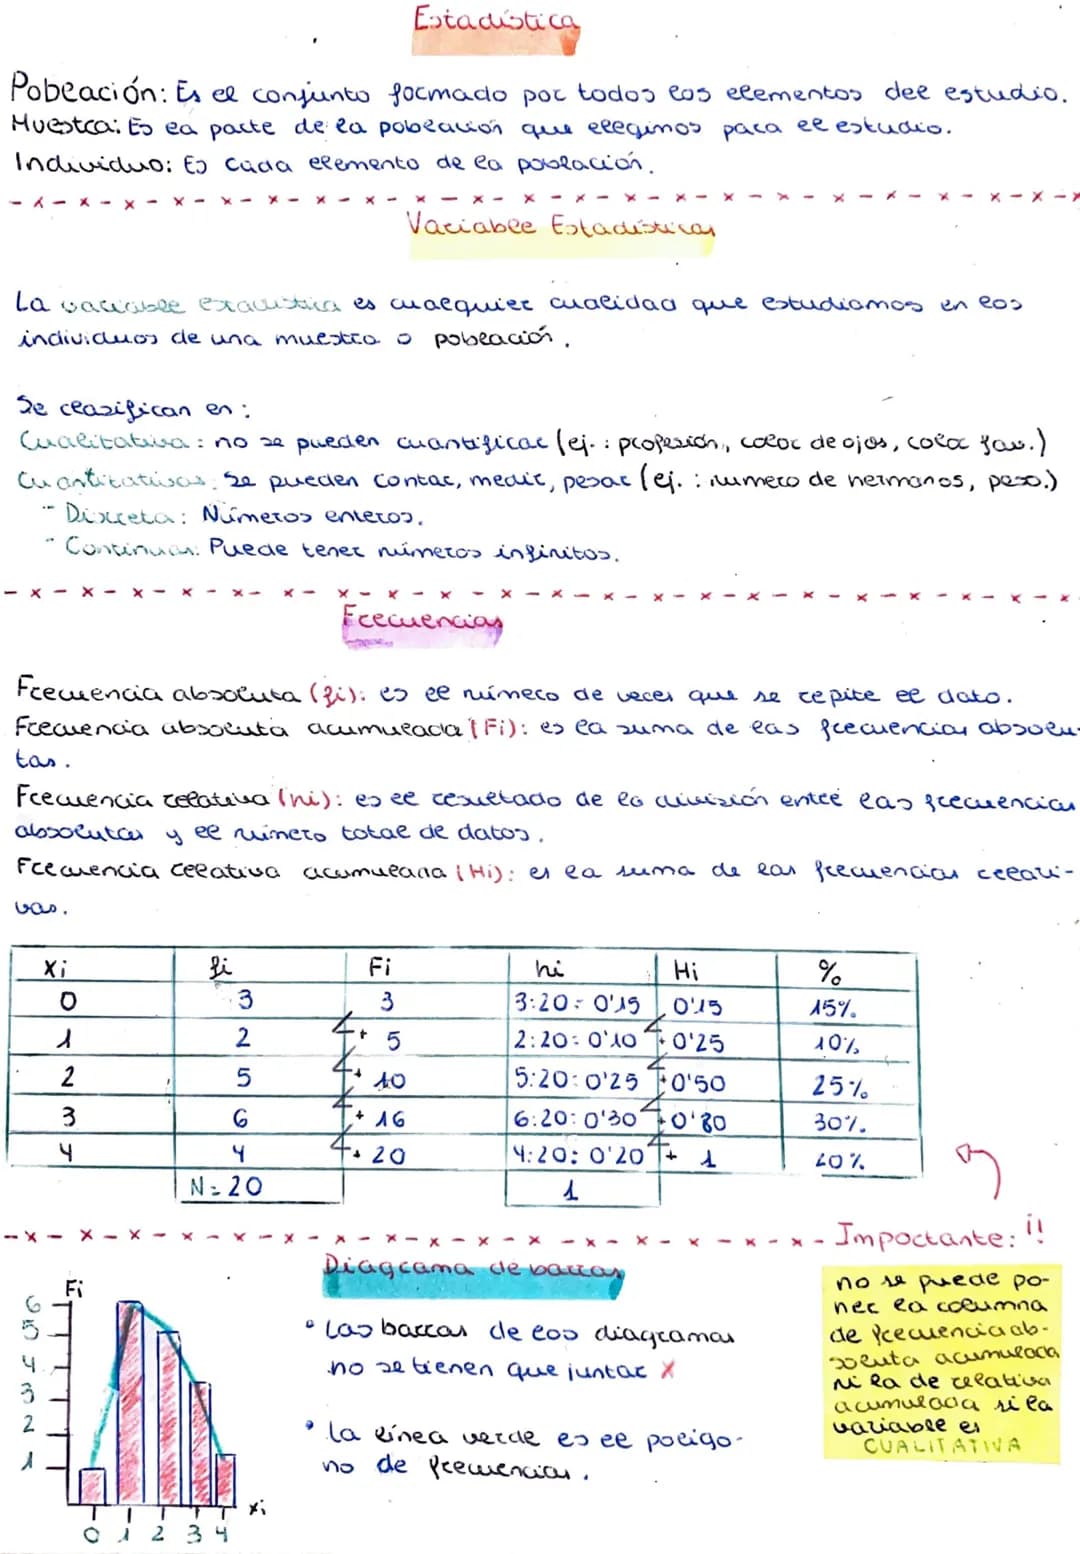 Estadística
Población: Es el conjunto formado por todos los elementos del estudio.
Muestra: Es la parte de la población que elegimos para el estudio.
Individuo: Es cada elemento de la población.
Variable Estadísticas
La variable estadística es cualquier cualidad que estudiamos en los
individuos de una muestra o población.
Se clasifican en:
Cualitativa: no se pueden cuantificar (ej.: profesión, color de ojos, color fav.)
Cuantitativas: se pueden contar, medir, pesar (ej.: numero de hermanos, peso.)
- Discreta: Números enteros.
- Continuas: Puede tener números infinitos.
Frecuencias
Frecuencia absoluta (fi): es el número de veces que se repite el dato.
Frecuencia absoluta acumulada (Fi): es la suma de las frecuencias absolu-
tas.
Frecuencia relativa (hi): es el resultado de la división entre las frecuencias
absolutas y el número total de datos.
Frecuencia relativa acumulada (Hi): es la suma de las frecuencias relati-
vas.
Xi fi Fi hi Hi %
0 3 3 3:20= 0'15 0'15 15%
1 2 + 5 2:20= 0'10 + 0'25 10%
2 5 + 10 5:20= 0'25 + 0'50 25%
3 6 + 16 6:20= 0'30 + 0'80 30%
4 4 + 20 4:20= 0'20 + 1 20%
N= 20 1
Importante: !!
no se puede po-
ner la columna
de frecuencia ab-
soluta acumulada
ni la de relativa
acumulada si la
variable es
CUALITATIVA
Diagrama de barras
• Las barras de los diagramas
no se tienen que juntar X
• La línea verde es el polígo-
no de frecuencias.
Fi
6
5
4
3
2
1
0 1 2 3 4
xi